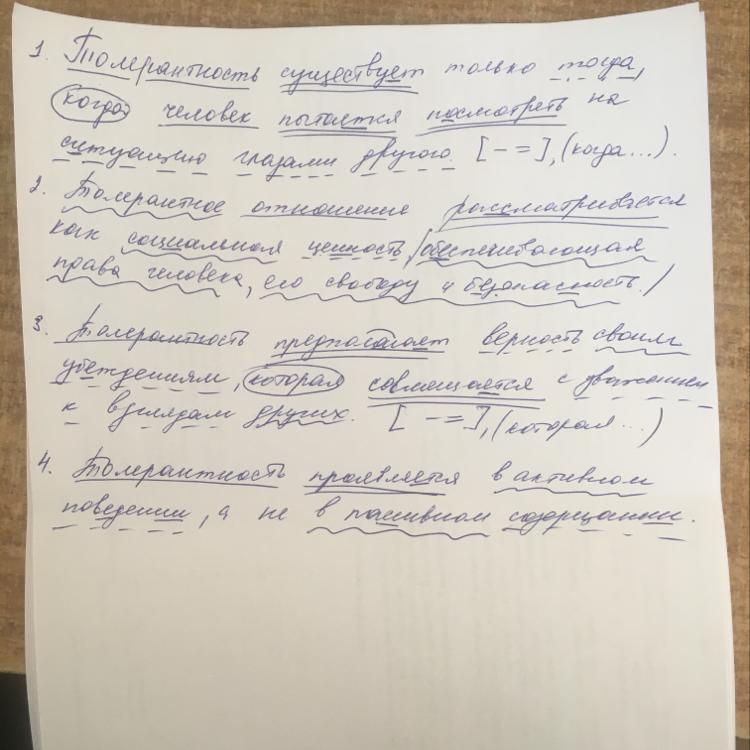 1. Толерантность существует только тогда,
когда человек пытается посмотреть на
ситуацию глазами другого. [ - = ], (когда...).
2. Толерантное отношение рассматривается
как социальная ценность, обеспечивающая
права человека, его свободу и безопасность.
3. Толерантность предполагает верность своим
убеждениям, которая совмещается с уважением
к взглядам других. [ - = ], (которая...)
4. Толерантность проявляется в активном
поведении, а не в пассивном созерцании.